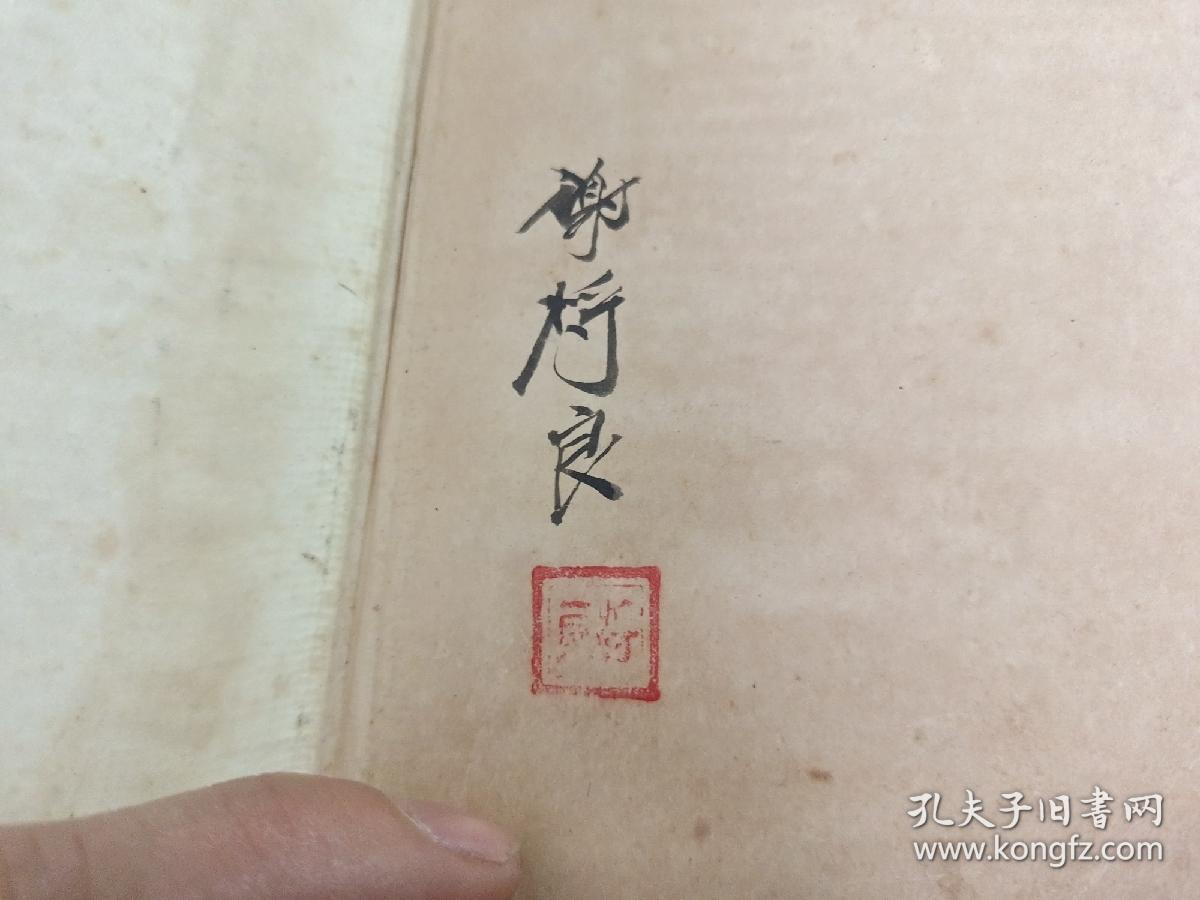 谢将良
将良
孔夫子旧书网
www.kongfz.com